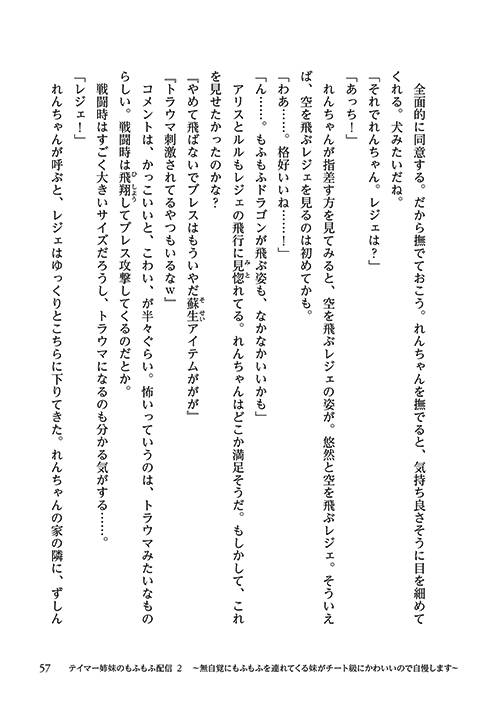 全面的に同意する。だから撫でておこう。れんちゃんを撫でると、気持ち良さそうに目を細めて
くれる。犬みたいだね。
「それでれんちゃん。レジェは？」
「あっち！」
　れんちゃんが指差す方を見てみると、空を飛ぶレジェの姿が。悠然と空を飛ぶレジェ。そういえ
ば、空を飛ぶレジェを見るのは初めてかも。
「わあ……。格好いいね……！」
「ん……。もふもふドラゴンが飛ぶ姿も、なかなかいいかも」
　アリスとルルもレジェの飛行に見惚れてる。れんちゃんはどこか満足そうだ。もしかして、これ
を見せたかったのかな？
『やめて飛ばないでブレスはもういやだ蘇生アイテムががが』
『トラウマ刺激されてるやつもいるなｗ』
　コメントは、かっこいいと、こわい、が半々ぐらい。怖いっていうのは、トラウマみたいなもの
らしい。戦闘時は飛翔してブレス攻撃してくるのだとか。
　戦闘時はすごく大きいサイズだろうし、トラウマになるのも分かる気がする……。
「レジェ！」
　れんちゃんが呼ぶと、レジェはゆっくりとこちらに下りてきた。れんちゃんの家の隣に、ずしん
57　テイマー姉妹のもふもふ配信 2　～無自覚にもふもふを連れてくる妹がチート級にかわいいので自慢します～